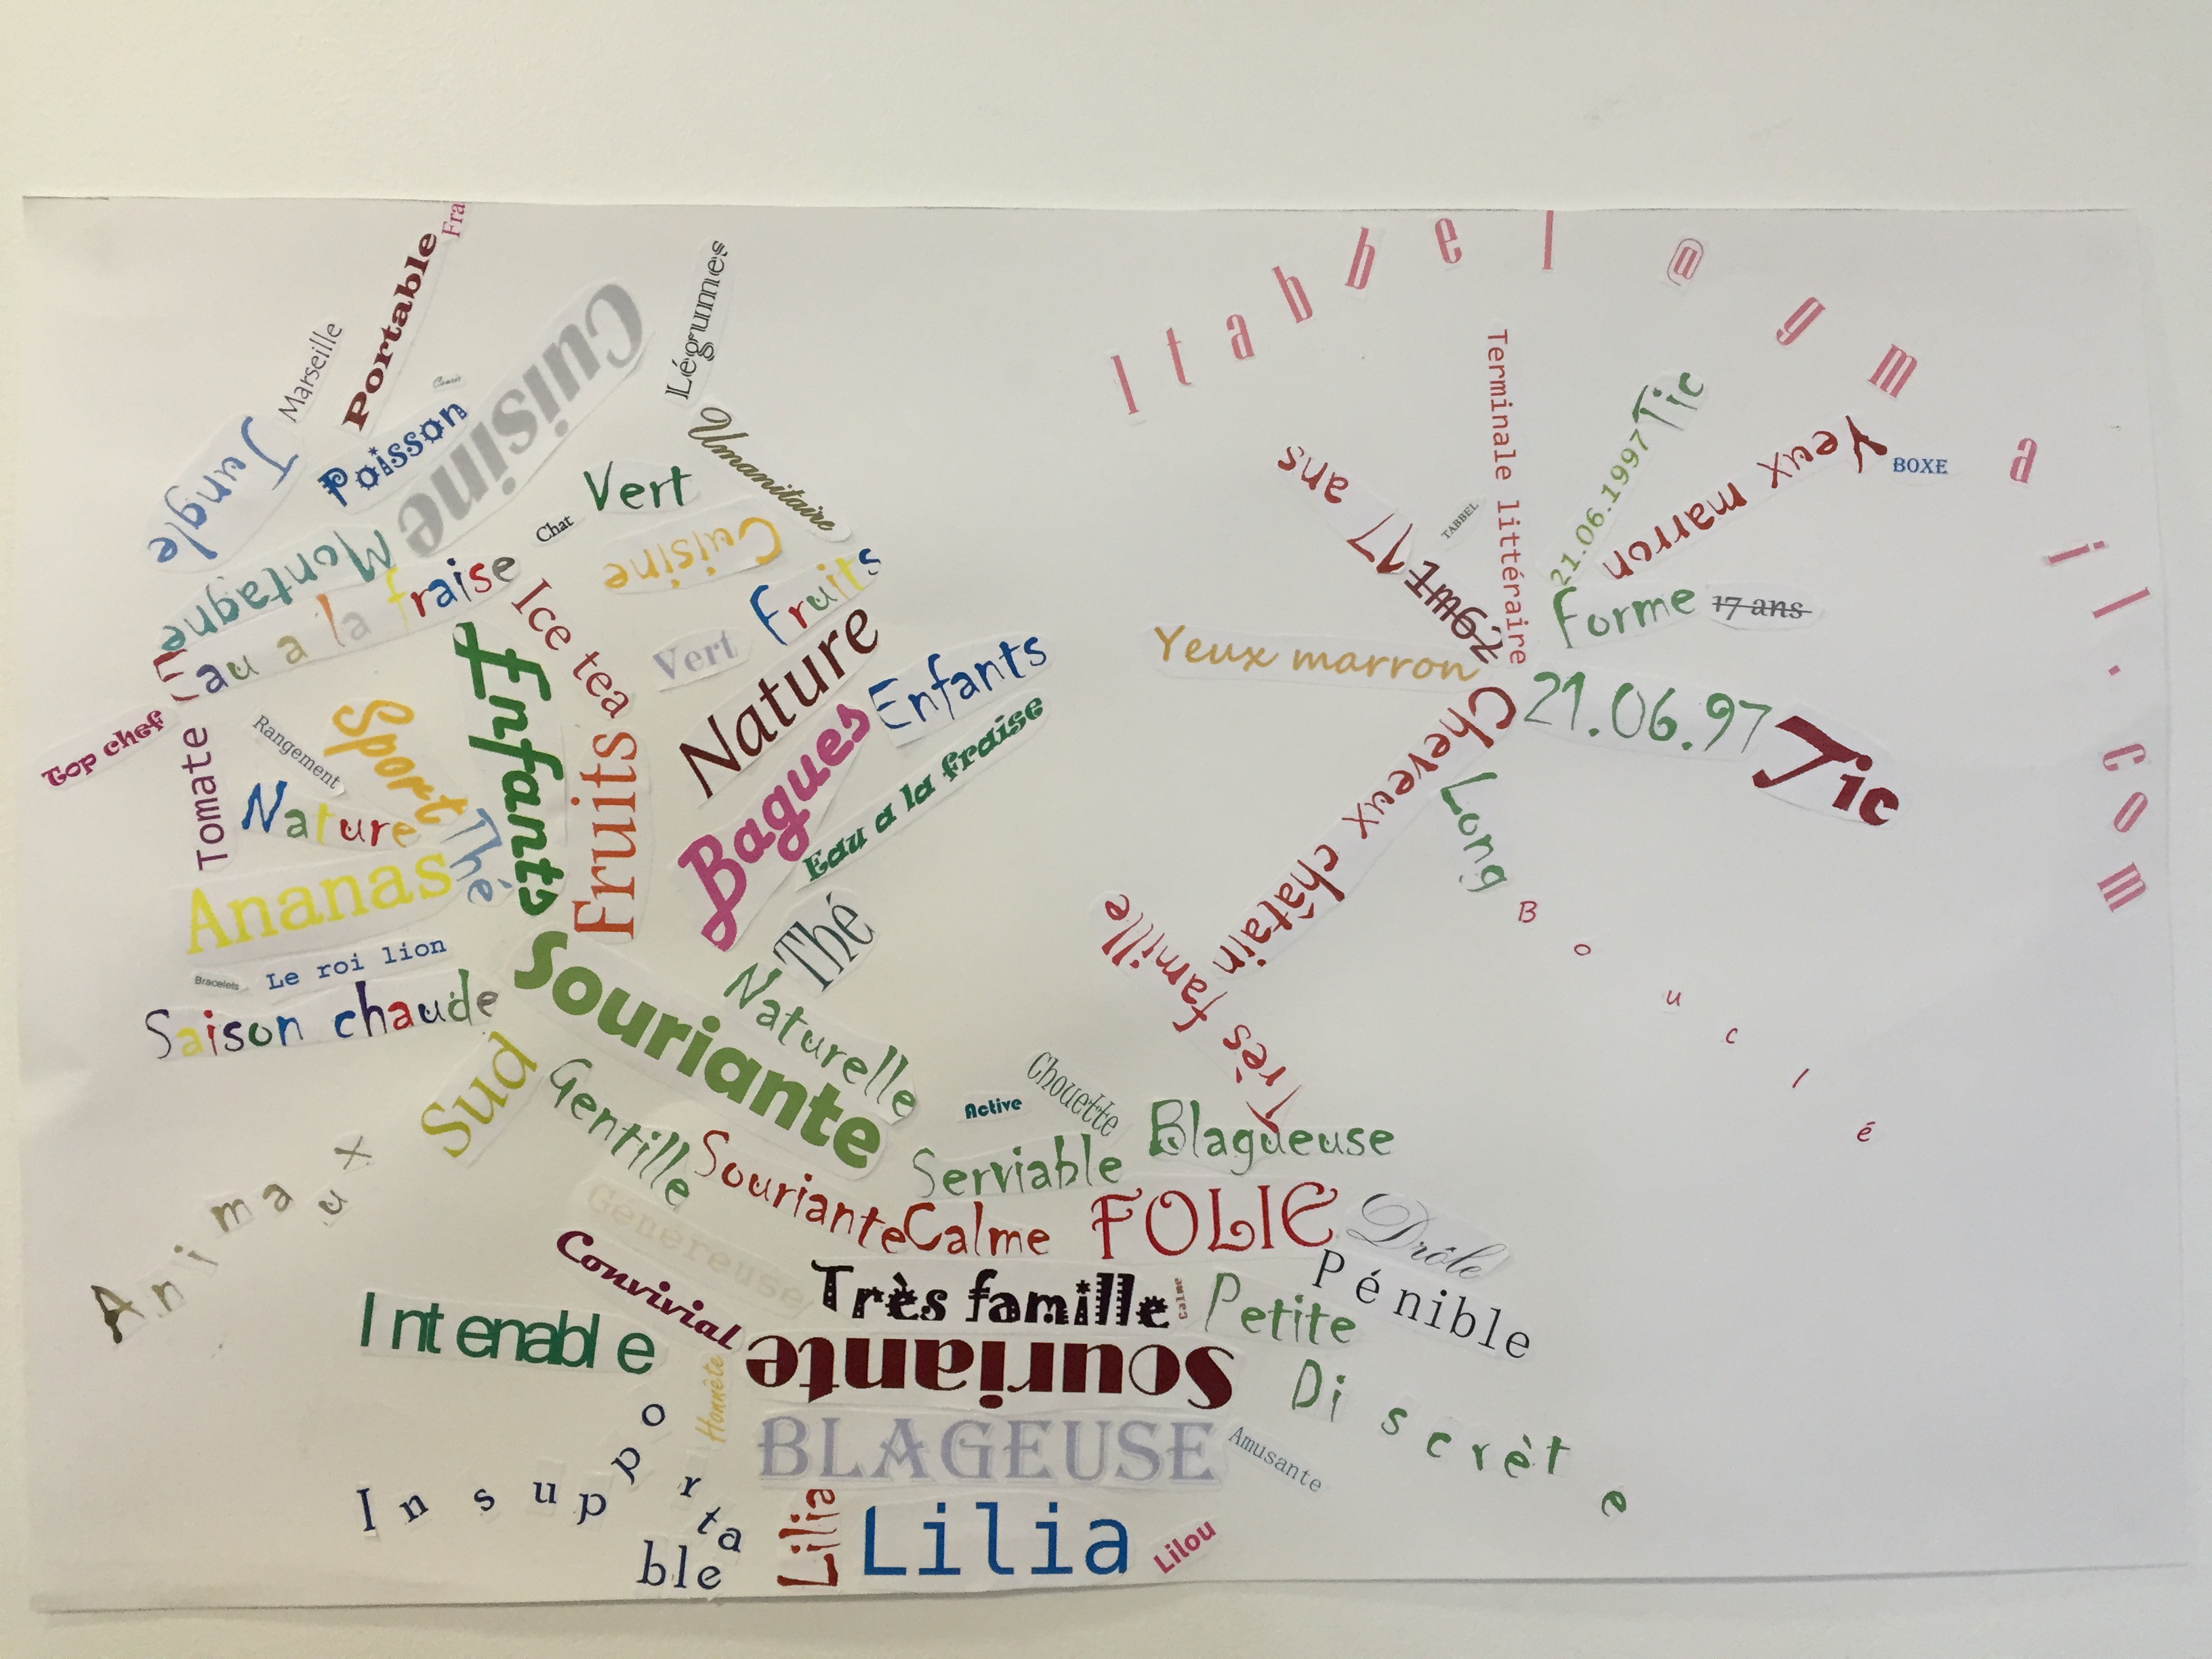 Fra
Portable
Marseille
Cuisine
Légumes
Poisson
Jungle
Umanitaire
Vert
Chat
Cuisine
Montagne
Eau a la fraise
Ice tea
Fruits
Vert
Nature
Enfants
Enfants
Bagues
Eau a la fraise
Top chef
Tomate
Rangement
Sport
Nature
Thé
Fruits
Ananas
Thé
Le roi lion
Bracelets
Saison chaude
Souriante
Naturelle
Sud
Gentille
Animaux
ltabbel@gmail.com
Terminale littéraire
21.06.1997
Tic
Yeux marron
BOXE
17 ans
TABBEL
Forme
17 ans
Yeux marron
21.06.97
Tic
Cheveux châtain
Long
Bouclé
Très famille
Chouette
Active
Blagueuse
Serviable
Souriante
Calme
FOLIE
Drôle
Généreuse
Convivial
Très famille
Calme
Petite
Pénible
Intenable
Souriante
Honnête
Discrète
BLAGEUSE
Amusante
Insupportable
Lilia
Lilia
Lilou